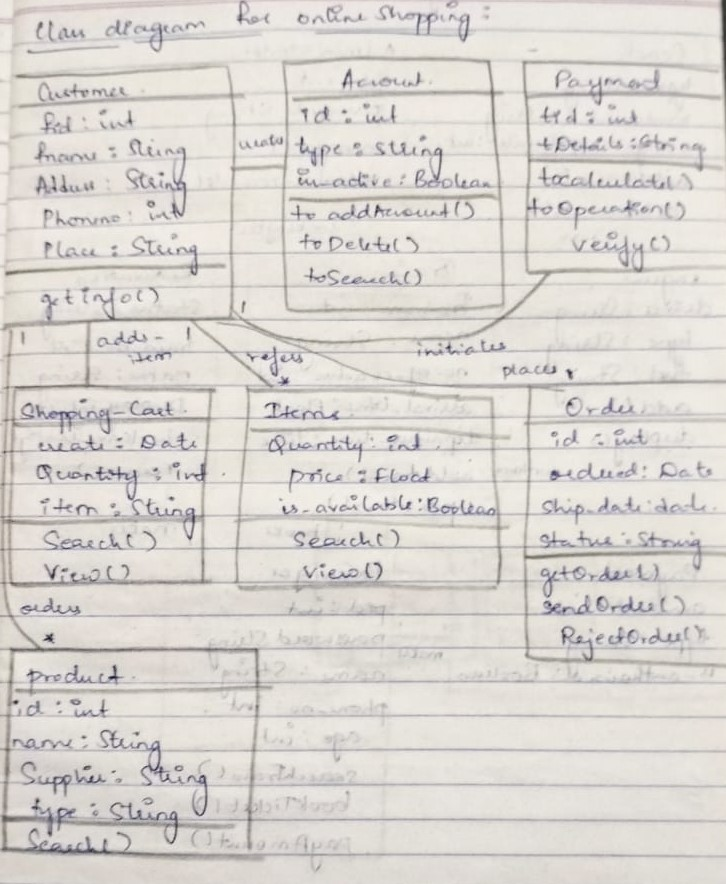 Class diagram for online shopping:
Customer
fid: int
fname: String
Address: String
Phoneno: int
Place: String
getinfo()
creates
Account.
id: int
type: String
in_active: Boolean
to addAccount()
toDelete()
toSearch()
Payment
tid: int
tDetails: String
tocalculate()
toOperation()
verify()
1
1
1
adds-
item
refers
*
initiates
places
Shopping-Cart
create: Date
Quantity: int.
item: String
Search()
View()
Items
Quantity: int.
price: Float
is_available: Boolean
Search()
View()
Order
id: int
orderid: Date
Ship-date: date.
status: String
getOrder()
sendOrder()
RejectOrder()
orders
*
product.
id: int
name: String
Supplier: String
type: String
Search()